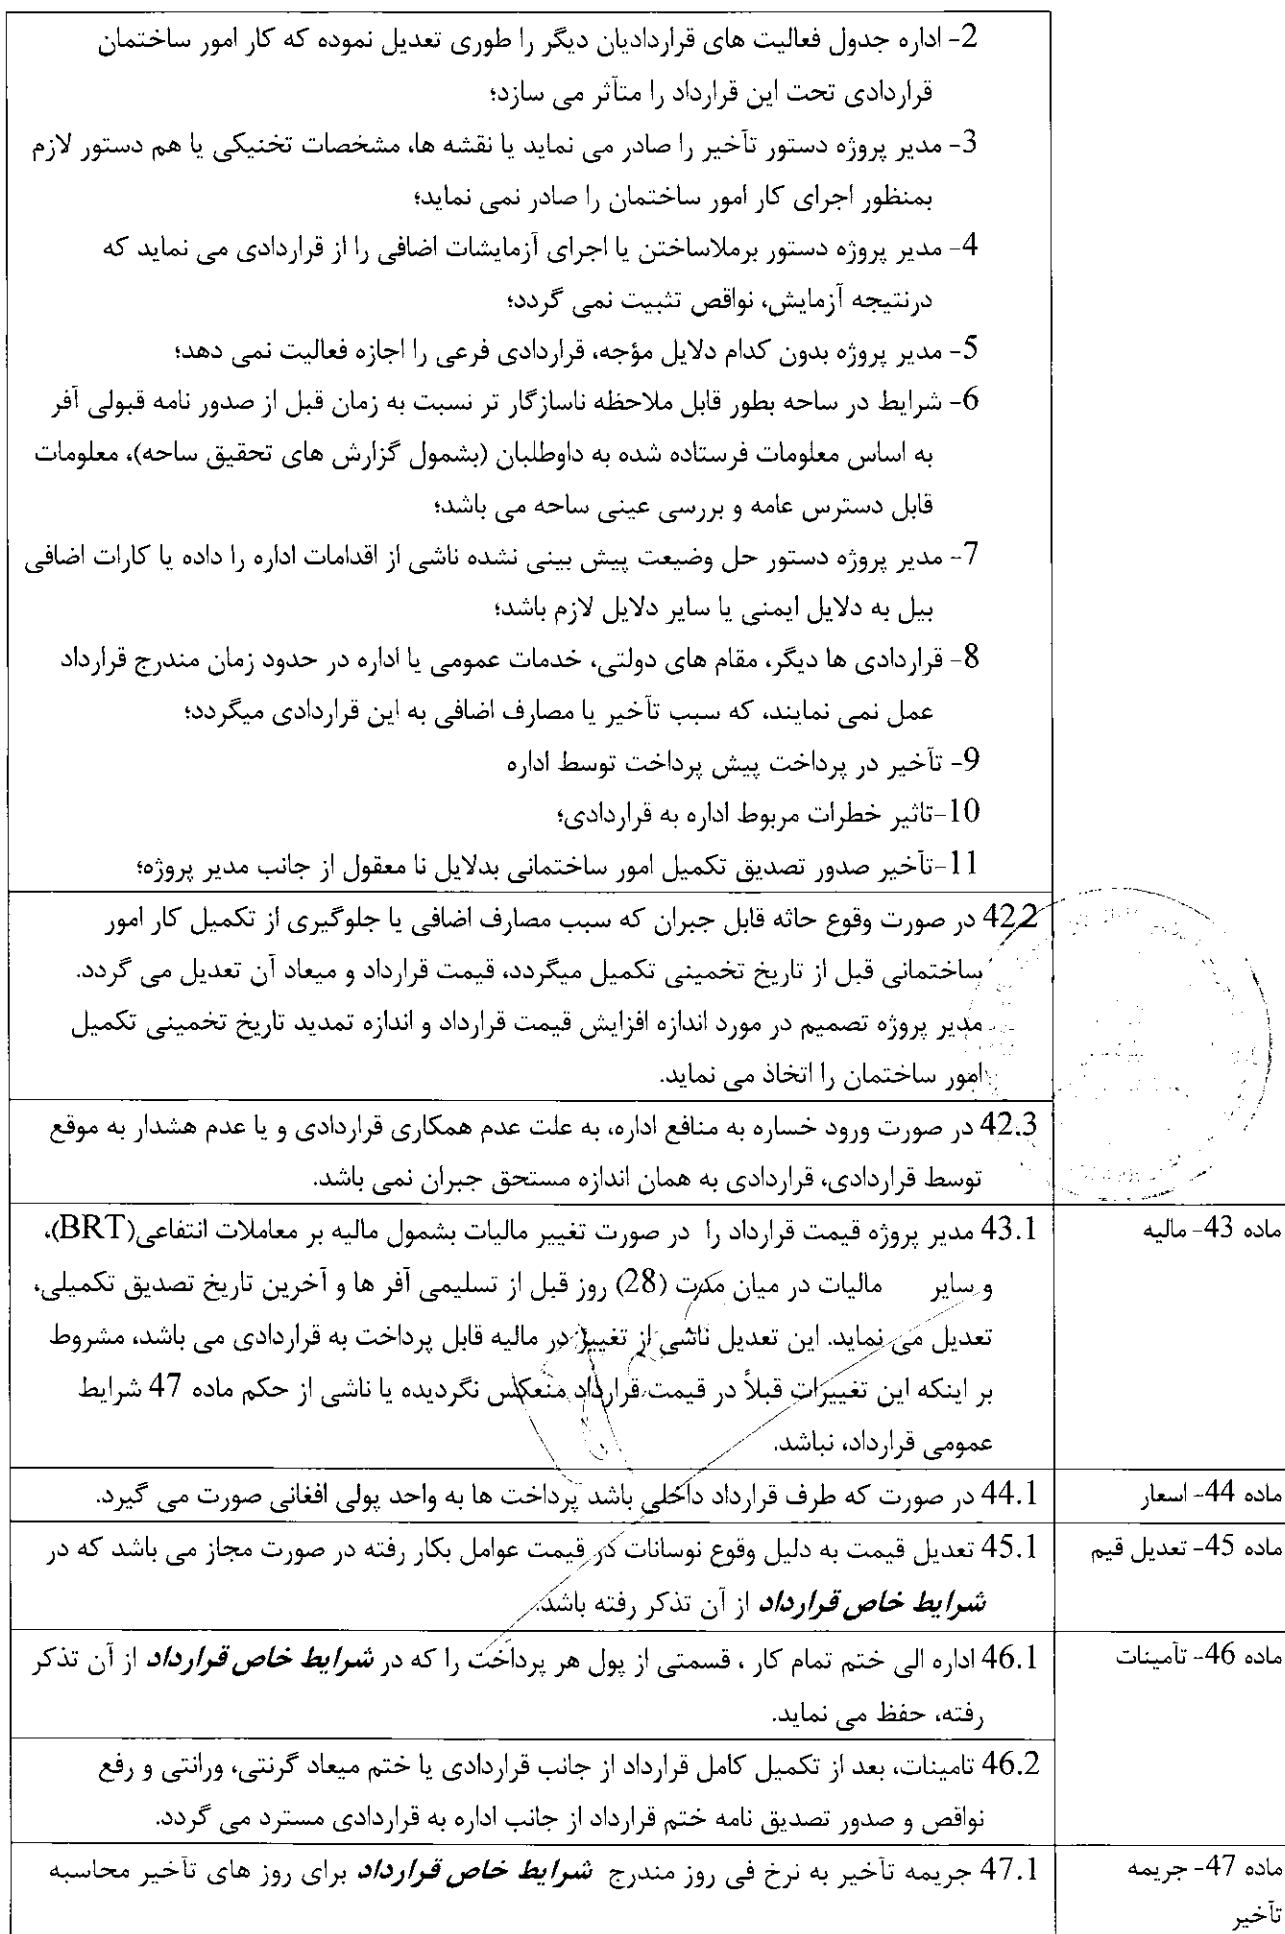 2- اداره جدول فعالیت های قراردادیان دیگر را طوری تعدیل نموده که کار امور ساختمان
قراردادی تحت این قرارداد را متأثر می سازد؛
3- مدیر پروژه دستور تأخیر را صادر می نماید یا نقشه ها، مشخصات تخنیکی یا هم دستور لازم
بمنظور اجرای کار امور ساختمان را صادر نمی نماید؛
4- مدیر پروژه دستور برملاساختن یا اجرای آزمایشات اضافی را از قراردادی می نماید که
درنتیجه آزمایش، نواقص تثبیت نمی گردد؛
5- مدیر پروژه بدون کدام دلایل مؤجه، قراردادی فرعی را اجازه فعالیت نمی دهد؛
6- شرایط در ساحه بطور قابل ملاحظه ناسازگار تر نسبت به زمان قبل از صدور نامه قبولی آفر
به اساس معلومات فرستاده شده به داوطلبان (بشمول گزارش های تحقیق ساحه)، معلومات
قابل دسترس عامه و بررسی عینی ساحه می باشد؛
7- مدیر پروژه دستور حل وضیعت پیش بینی نشده ناشی از اقدامات اداره را داده یا کارات اضافی
بیل به دلایل ایمنی یا سایر دلایل لازم باشد؛
8- قراردادی ها دیگر، مقام های دولتی، خدمات عمومی یا اداره در حدود زمان مندرج قرارداد
عمل نمی نمایند، که سبب تأخیر یا مصارف اضافی به این قراردادی میگردد؛
9- تأخیر در پرداخت پیش پرداخت توسط اداره
10-تاثیر خطرات مربوط اداره به قراردادی؛
11-تأخیر صدور تصدیق تکمیل امور ساختمانی بدلایل نا معقول از جانب مدیر پروژه؛
42.2 در صورت وقوع حاثه قابل جبران که سبب مصارف اضافی یا جلوگیری از تکمیل کار امور
ساختمانی قبل از تاریخ تخمینی تکمیل میگردد، قیمت قرارداد و میعاد آن تعدیل می گردد.
مدیر پروژه تصمیم در مورد اندازه افزایش قیمت قرارداد و اندازه تمدید تاریخ تخمینی تکمیل
امور ساختمان را اتخاذ می نماید.
42.3 در صورت ورود خساره به منافع اداره، به علت عدم همکاری قراردادی و یا عدم هشدار به موقع
توسط قراردادی، قراردادی به همان اندازه مستحق جبران نمی باشد.
ماده 43- مالیه
43.1 مدیر پروژه قیمت قرارداد را در صورت تغییر مالیات بشمول مالیه بر معاملات انتفاعی(BRT)،
و سایر مالیات در میان مدت (28) روز قبل از تسلیمی آفر ها و آخرین تاریخ تصدیق تکمیلی،
تعدیل می نماید. این تعدیل ناشی از تغییر در مالیه قابل پرداخت به قراردادی می باشد، مشروط
بر اینکه این تغییرات قبلاً در قیمت قرارداد منعکس نگردیده یا ناشی از حکم ماده 47 شرایط
عمومی قرارداد، نباشد.
ماده 44- اسعار
44.1 در صورت که طرف قرارداد داخلی باشد پرداخت ها به واحد پولی افغانی صورت می گیرد.
ماده 45- تعدیل قیم
45.1 تعدیل قیمت به دلیل وقوع نوسانات در قیمت عوامل بکار رفته در صورت مجاز می باشد که در
شرایط خاص قرارداد از آن تذکر رفته باشد.
ماده 46- تأمینات
46.1 اداره الی ختم تمام کار ، قسمتی از پول هر پرداخت را که در شرایط خاص قرارداد از آن تذکر
رفته، حفظ می نماید.
46.2 تامینات، بعد از تکمیل کامل قرارداد از جانب قراردادی یا ختم میعاد گرنتی، ورانتی و رفع
نواقص و صدور تصدیق نامه ختم قرارداد از جانب اداره به قراردادی مسترد می گردد.
ماده 47- جریمه
تأخیر
47.1 جریمه تأخیر به نرخ فی روز مندرج شرایط خاص قرارداد برای روز های تأخیر محاسبه